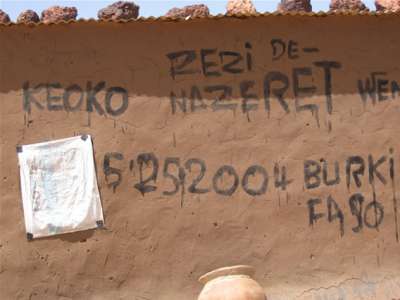 REZI DE-
KEOKO NAZERET WEN
5'25'2004 BURKI
FASO